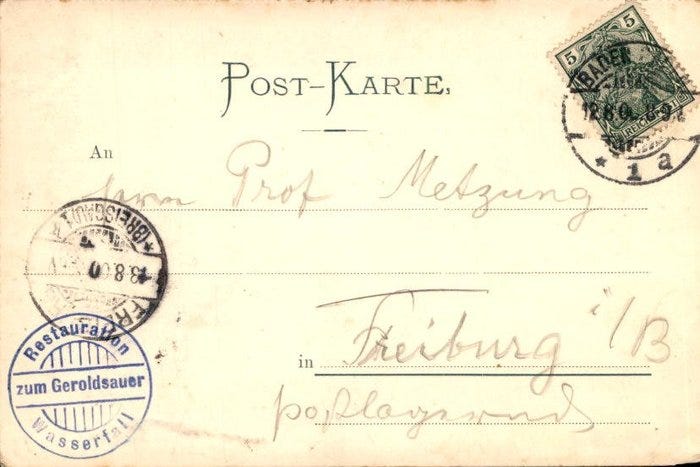 POST-KARTE.
5 5
REICHSPOST
BADEN
12.8.0
* 1 a
An
Herrn Prof Metzung
(BREISGAU) 1
13.8.00
FR
Restauration
zum Geroldsauer
Wasserfall
in Freiburg i/B
postlagernd